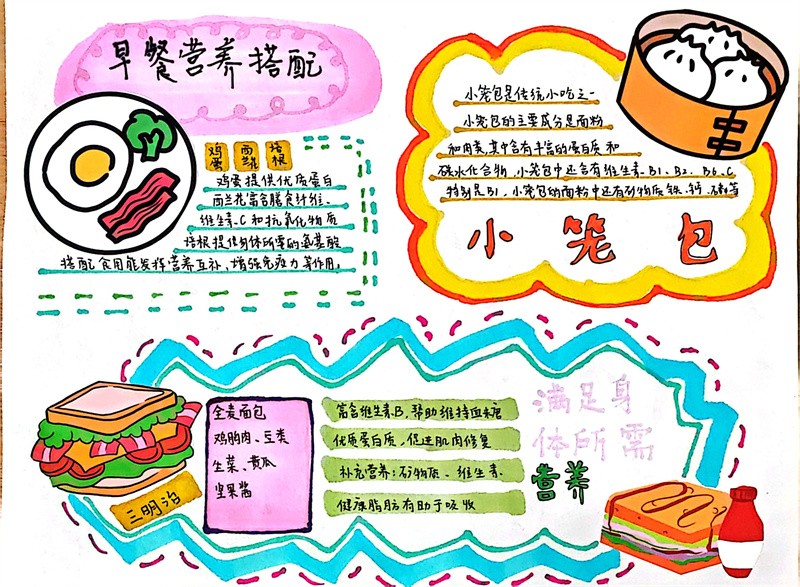 早餐营养搭配
鸡蛋 西兰花 培根
鸡蛋提供优质蛋白
西兰花富含膳食纤维、
维生素C和抗氧化物质
培根提供身体所需的氨基酸
搭配食用能发挥营养互补,增强免疫力等作用。
小笼包是传统小吃之一
小笼包的主要成分是面粉
和肉类,其中含有丰富的蛋白质和
碳水化合物,小笼包中还含有维生素、B1、B2、B6、C
特别是B1,小笼包的面粉中还有矿物质铁、钙、磷等
小笼包
三明治
全麦面包
鸡胸肉、豆类
生菜、黄瓜
坚果酱
富含维生素B,帮助维持血糖
优质蛋白质,促进肌肉修复
补充营养:矿物质、维生素
健康脂肪有助于吸收
满足身
体所需
营养